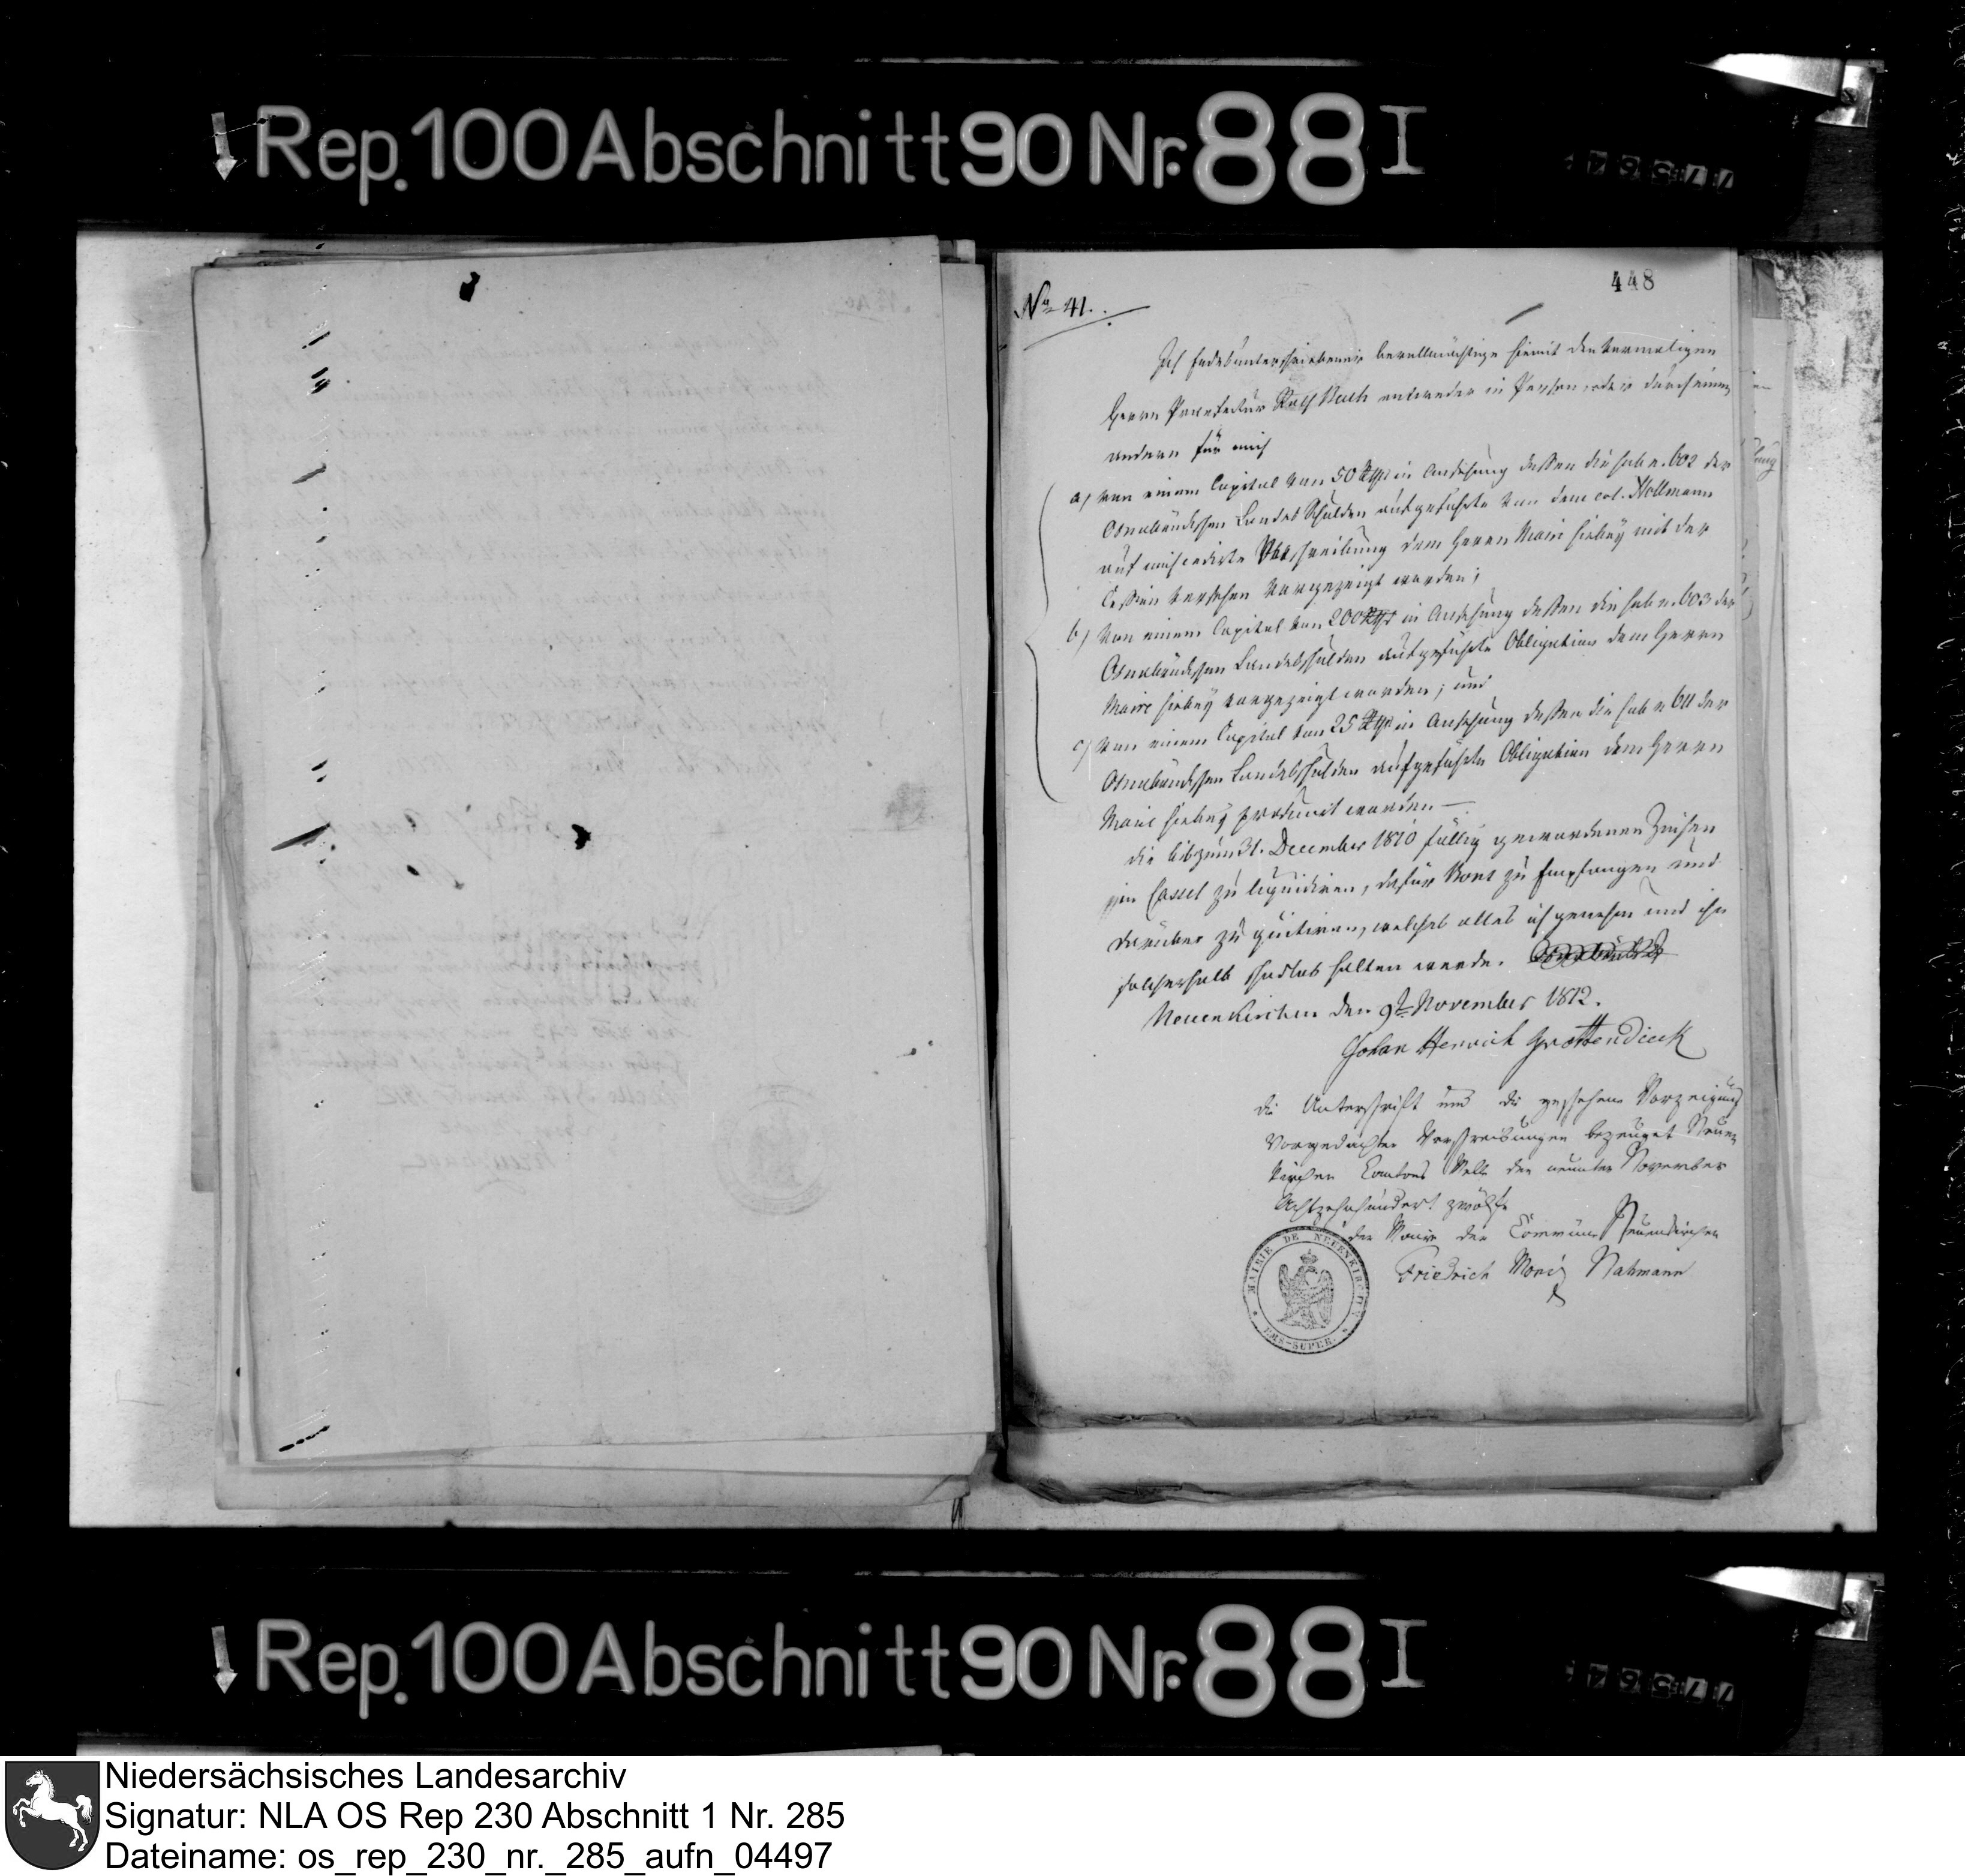 Rep. 100 Abschnitt 90 Nr. 88 I
448
No 41.
Ich Endesunterschriebener bevollmächtige hiemit den vormaligen
Herrn Procurator entweder in Person, oder durch einen
andern für mich
a) von einem Capital von 50 Rthr in Ansehung dessen die sub n. 602 der
Osnabrückschen Landes Schulden aufgeführte von dem col. Nollmann
auf mich cedirte Verschreibung dem Herrn Maire hieby mit der
Cession versehen vorgezeigt worden;
b) von einem Capital von 200 Rthr in Ansehung dessen die sub n. 603 der
Osnabrückschen Landesschulden aufgeführte Obligation dem Herrn
Maire hieby vorgezeigt worden; und
c) von einem Capital von 25 Rthr in Ansehung dessen die sub n 611 der
Osnabrückschen Landesschulden aufgeführte Obligation dem Herrn
Maire hieby producirt worden —
die bis zum 31. December 1810 fällig gewordenen Zinsen
in Cassel zu liquidiren, dafür Bons zu empfangen und
darüber zu quitiren, welches alles ich genehm und ihn
solcherhalb schadlos halten werde.
Neuenkirchen den 9t November 1812.
Johan Henrich Grottendieck
die Unterschrift und die geschehene Vorzeigung
Vorgedachter Verschreibungen bezeuget Neuen
kirchen Cantons Melle den neunten November
Achtzehnhundert zwölfe
der Maire der Commune Neuenkirchen
Friedrich Moriz Nahmann
MAIRIE DE NEUENKIRCHEN
EMS-SUPER.
Rep. 100 Abschnitt 90 Nr. 88 I
Niedersächsisches Landesarchiv
Signatur: NLA OS Rep 230 Abschnitt 1 Nr. 285
Dateiname: os_rep_230_nr._285_aufn_04497